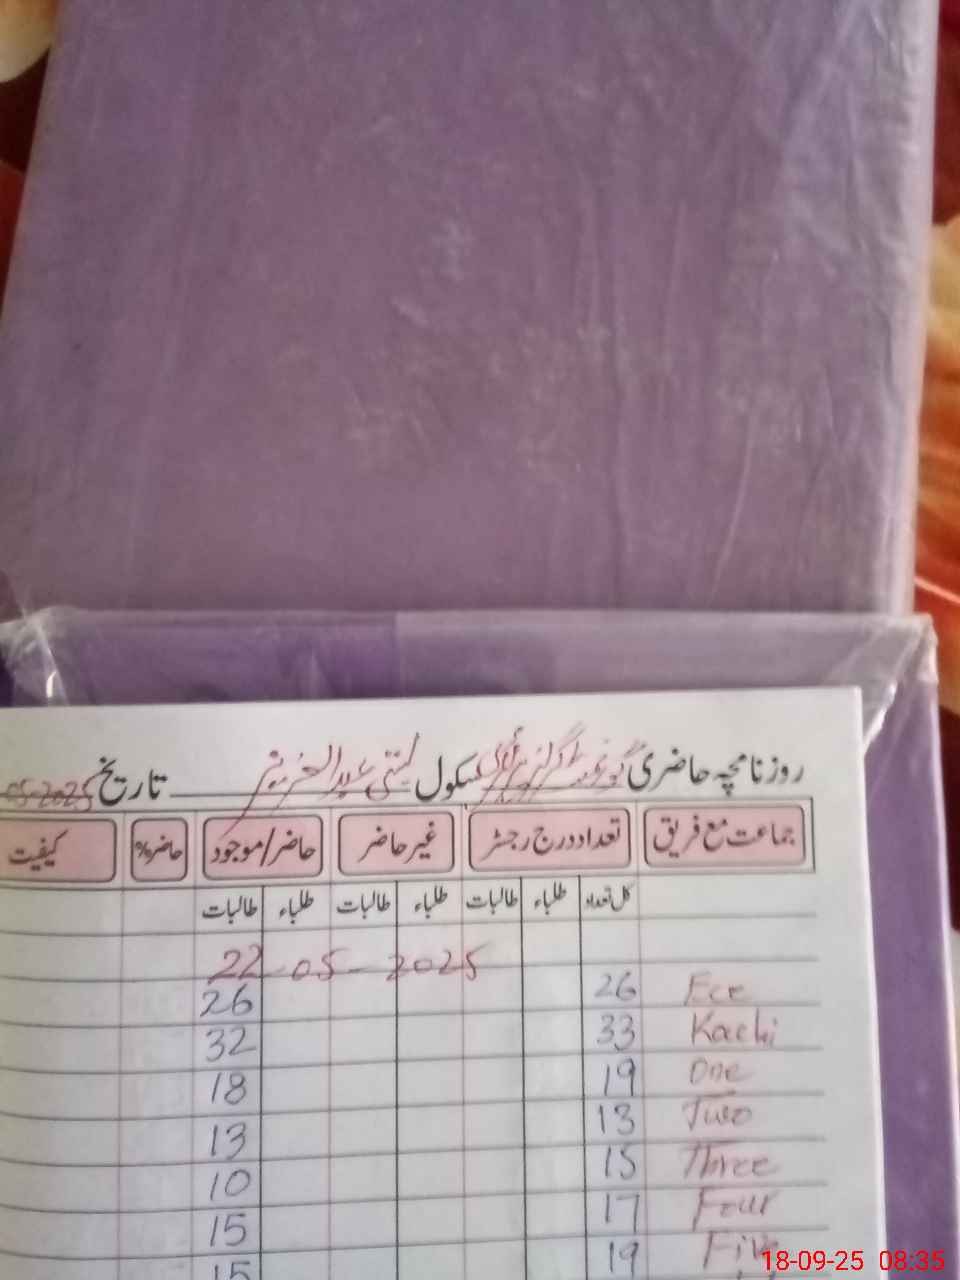 روزنامچہ حاضری گورنمنٹ گرلز پرائمری سکول بستی عبدالعزیز تاریخ 05-2025
جماعت مع فریق تعداد درج رجسٹر غیر حاضر حاضر/موجود حاضر% کیفیت
کل تعداد طلباء طالبات طلباء طالبات طلباء طالبات
22-05-2025
Ece 26 26
Kachi 33 32
One 19 18
Two 13 13
Three 15 10
Four 17 15
Five 19 15
18-09-25 08:35